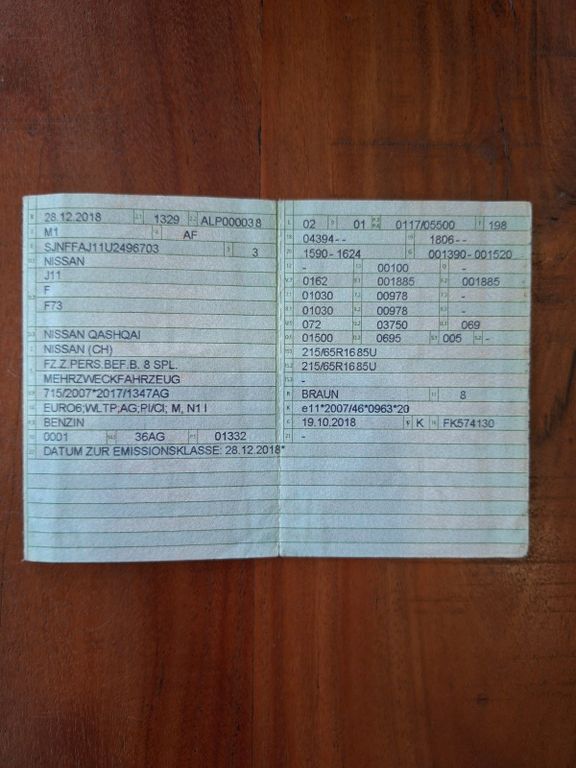 28.12.2018 1329 ALP000038
M1 AF
SJNFFAJ11U2496703 3
NISSAN
J11
F
F73
NISSAN QASHQAI
NISSAN (CH)
FZ.Z.PERS.BEF.B. 8 SPL.
MEHRZWECKFAHRZEUG
715/2007*2017/1347AG
EURO6;WLTP;AG;PI/CI; M, N1 I
BENZIN
0001 36AG 01332
DATUM ZUR EMISSIONSKLASSE: 28.12.2018*
02 01 0117/05500 198
04394-- 1806--
1590-1624 001390-001520
- 00100 -
0162 001885 001885
01030 00978 -
01030 00978 -
072 03750 069
01500 0695 005 -
215/65R16 85U
215/65R16 85U
-
BRAUN 8
e11*2007/46*0963*20
19.10.2018 K FK574130
-